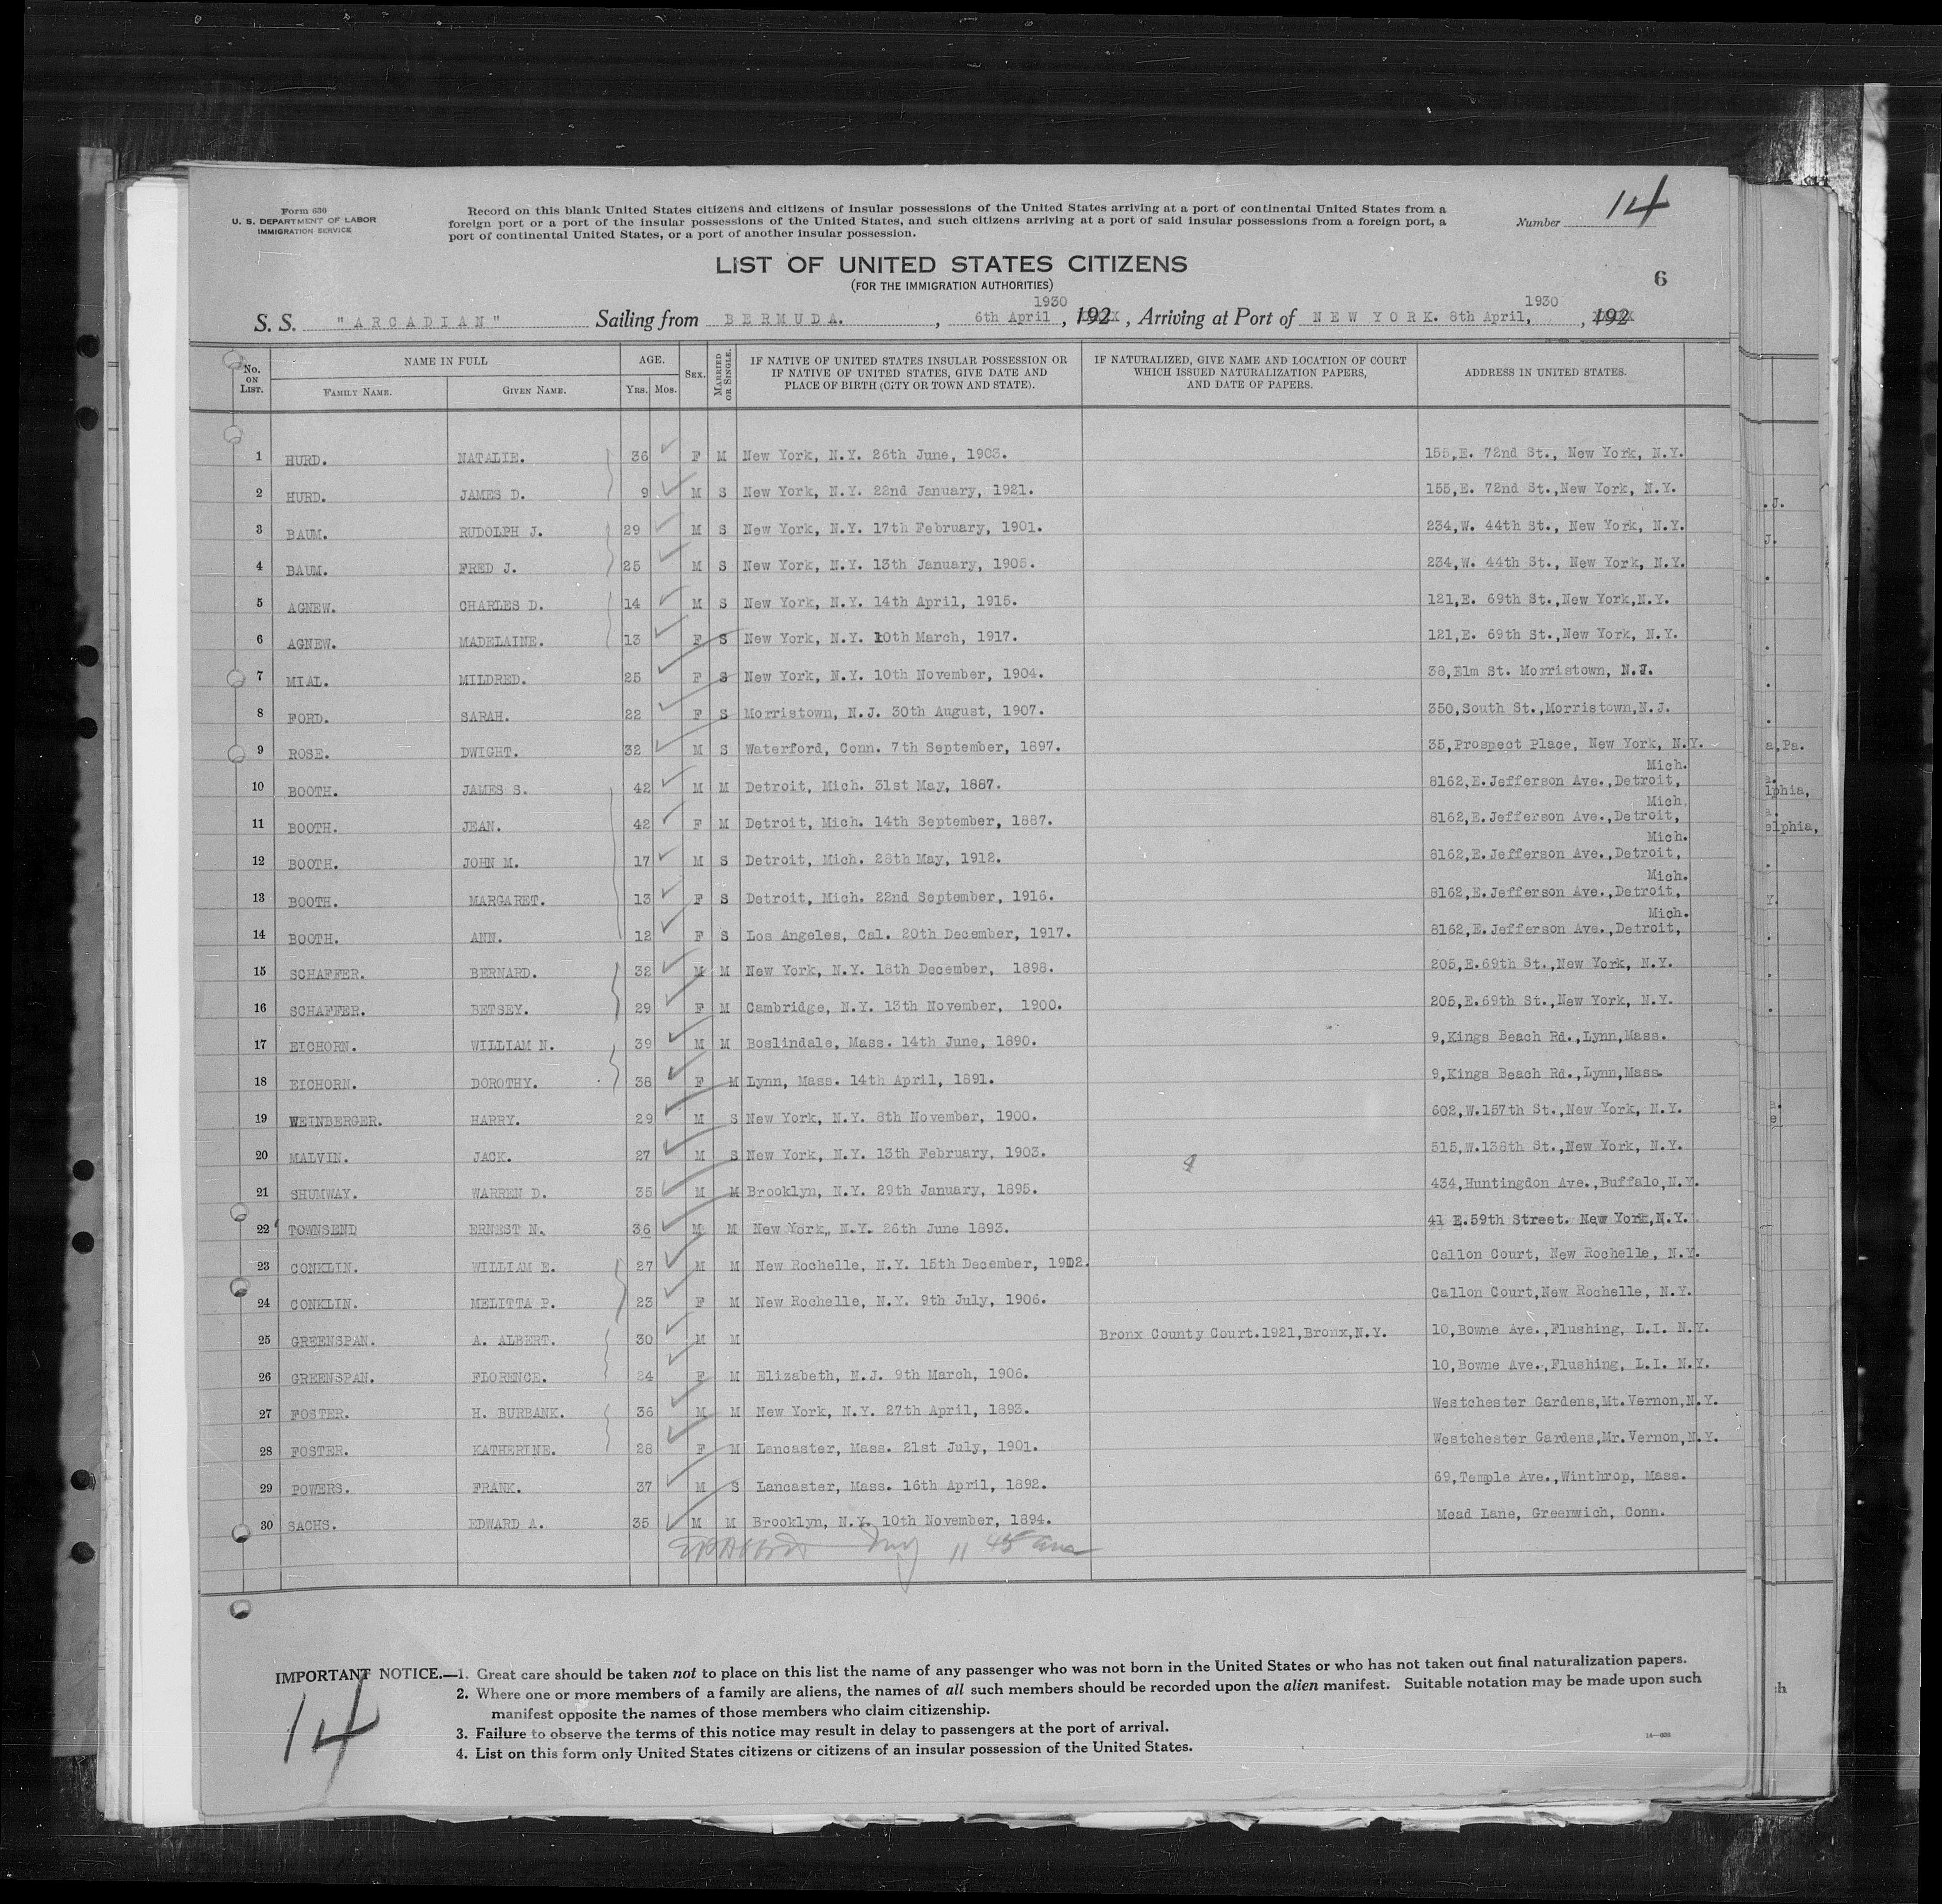 Form 630
U. S. DEPARTMENT OF LABOR
IMMIGRATION SERVICE
Record on this blank United States citizens and citizens of insular possessions of the United States arriving at a port of continental United States from a
foreign port or a port of the insular possessions of the United States, and such citizens arriving at a port of said insular possessions from a foreign port, a
port of continental United States, or a port of another insular possession.
Number 14
LIST OF UNITED STATES CITIZENS
(FOR THE IMMIGRATION AUTHORITIES)
6
S. S. "ARCADIAN" Sailing from BERMUDA. , 6th April 1930 , 192 , Arriving at Port of NEW YORK. 8th April, 1930 , 192
No. ON LIST. NAME IN FULL FAMILY NAME. GIVEN NAME. AGE. YRS. MOS. SEX. MARRIED OR SINGLE. IF NATIVE OF UNITED STATES INSULAR POSSESSION OR IF NATIVE OF UNITED STATES, GIVE DATE AND PLACE OF BIRTH (CITY OR TOWN AND STATE). IF NATURALIZED, GIVE NAME AND LOCATION OF COURT WHICH ISSUED NATURALIZATION PAPERS, AND DATE OF PAPERS. ADDRESS IN UNITED STATES.
1 HURD. NATALIE. 36 F M New York, N.Y. 26th June, 1903. 155,E. 72nd St., New York, N.Y.
2 HURD. JAMES D. 9 M S New York, N.Y. 22nd January, 1921. 155,E. 72nd St.,New York, N.Y.
3 BAUM. RUDOLPH J. 29 M S New York, N.Y. 17th February, 1901. 234,W. 44th St., New York, N.Y.
4 BAUM. FRED J. 25 M S New York, N.Y. 13th January, 1905. 234,W. 44th St., New York, N.Y.
5 AGNEW. CHARLES D. 14 M S New York, N.Y. 14th April, 1915. 121,E. 69th St.,New York,N.Y.
6 AGNEW. MADELAINE. 13 F S New York, N.Y. 10th March, 1917. 121,E. 69th St.,New York, N.Y.
7 MIAL. MILDRED. 25 F S New York, N.Y. 10th November, 1904. 38,Elm St. Morristown, N.J.
8 FORD. SARAH. 22 F S Morristown, N.J. 30th August, 1907. 350,South St.,Morristown,N.J.
9 ROSE. DWIGHT. 32 M S Waterford, Conn. 7th September, 1897. 35,Prospect Place, New York, N.Y.
10 BOOTH. JAMES S. 42 M M Detroit, Mich. 31st May, 1887. 8162,E.Jefferson Ave.,Detroit, Mich.
11 BOOTH. JEAN. 42 F M Detroit, Mich. 14th September, 1887. 8162,E.Jefferson Ave.,Detroit, Mich.
12 BOOTH. JOHN M. 17 M S Detroit, Mich. 28th May, 1912. 8162,E.Jefferson Ave.,Detroit, Mich.
13 BOOTH. MARGARET. 13 F S Detroit, Mich. 22nd September, 1916. 8162,E.Jefferson Ave.,Detroit, Mich.
14 BOOTH. ANN. 12 F S Los Angeles, Cal. 20th December, 1917. 8162,E.Jefferson Ave.,Detroit, Mich.
15 SCHAFFER. BERNARD. 32 M M New York, N.Y. 18th December, 1898. 205,E.69th St.,New York, N.Y.
16 SCHAFFER. BETSEY. 29 F M Cambridge, N.Y. 13th November, 1900. 205,E.69th St.,New York, N.Y.
17 EICHORN. WILLIAM N. 39 M M Boslindale, Mass. 14th June, 1890. 9,Kings Beach Rd.,Lynn,Mass.
18 EICHORN. DOROTHY. 38 F M Lynn, Mass. 14th April, 1891. 9,Kings Beach Rd.,Lynn,Mass.
19 WEINBERGER. HARRY. 29 M S New York, N.Y. 8th November, 1900. 602,W.157th St.,New York, N.Y.
20 MALVIN. JACK. 27 M S New York, N.Y. 13th February, 1903. 515,W.138th St.,New York, N.Y.
21 SHUMWAY. WARREN D. 35 M M Brooklyn, N.Y. 29th January, 1895. 434,Huntingdon Ave.,Buffalo,N.Y.
22 TOWNSEND ERNEST N. 36 M M New York, N.Y. 26th June 1893. 41 E.59th Street. New York,N.Y.
23 CONKLIN. WILLIAM E. 27 M M New Rochelle, N.Y. 15th December, 1902. Callon Court, New Rochelle, N.Y.
24 CONKLIN. MELITTA P. 23 F M New Rochelle, N.Y. 9th July, 1906. Callon Court,New Rochelle, N.Y.
25 GREENSPAN. A. ALBERT. 30 M M Bronx County Court.1921,Bronx,N.Y. 10,Bowne Ave.,Flushing, L.I. N.Y.
26 GREENSPAN. FLORENCE. 24 F M Elizabeth, N.J. 9th March, 1906. 10,Bowne Ave.,Flushing, L.I. N.Y.
27 FOSTER. H. BURBANK. 36 M M New York, N.Y. 27th April, 1893. Westchester Gardens,Mt.Vernon,N.Y.
28 FOSTER. KATHERINE. 28 F M Lancaster, Mass. 21st July, 1901. Westchester Gardens,Mr.Vernon,N.Y.
29 POWERS. FRANK. 37 M S Lancaster, Mass. 16th April, 1892. 69,Temple Ave.,Winthrop, Mass.
30 SACHS. EDWARD A. 35 M M Brooklyn, N.Y. 10th November, 1894. Mead Lane, Greenwich, Conn.
11 45 am
IMPORTANT NOTICE.—1. Great care should be taken not to place on this list the name of any passenger who was not born in the United States or who has not taken out final naturalization papers.
2. Where one or more members of a family are aliens, the names of all such members should be recorded upon the alien manifest. Suitable notation may be made upon such
manifest opposite the names of those members who claim citizenship.
3. Failure to observe the terms of this notice may result in delay to passengers at the port of arrival.
4. List on this form only United States citizens or citizens of an insular possession of the United States.
14